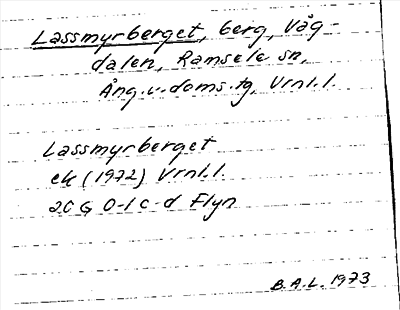 Lassmyrberget, berg, Våg-
dalen, Ramsele sn,
Ång. v. doms. tg, Vrnl. l.
Lassmyrberget
ek (1972) Vrnl. l.
20 G 0-1 c-d Flyn
B.A.L. 1973